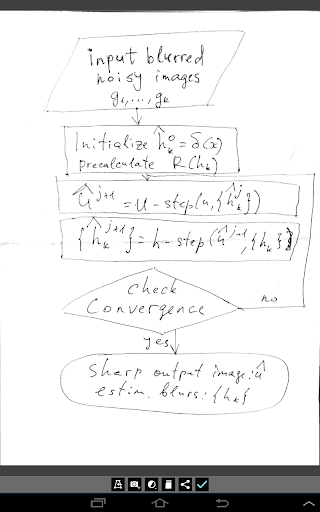 input blurred
noisy images
g₁,...,gₖ
Initialize ĥₖ⁰ = δ(x)
precalculate R(hₖ)
û^{j+1} = u-step(u,{ĥₖ^j})
{ĥₖ^{j+1}} = h-step(û^{j+1},{hₖ})
check
Convergence
no
yes
Sharp output image: û
estim. blurs: {hₖ}